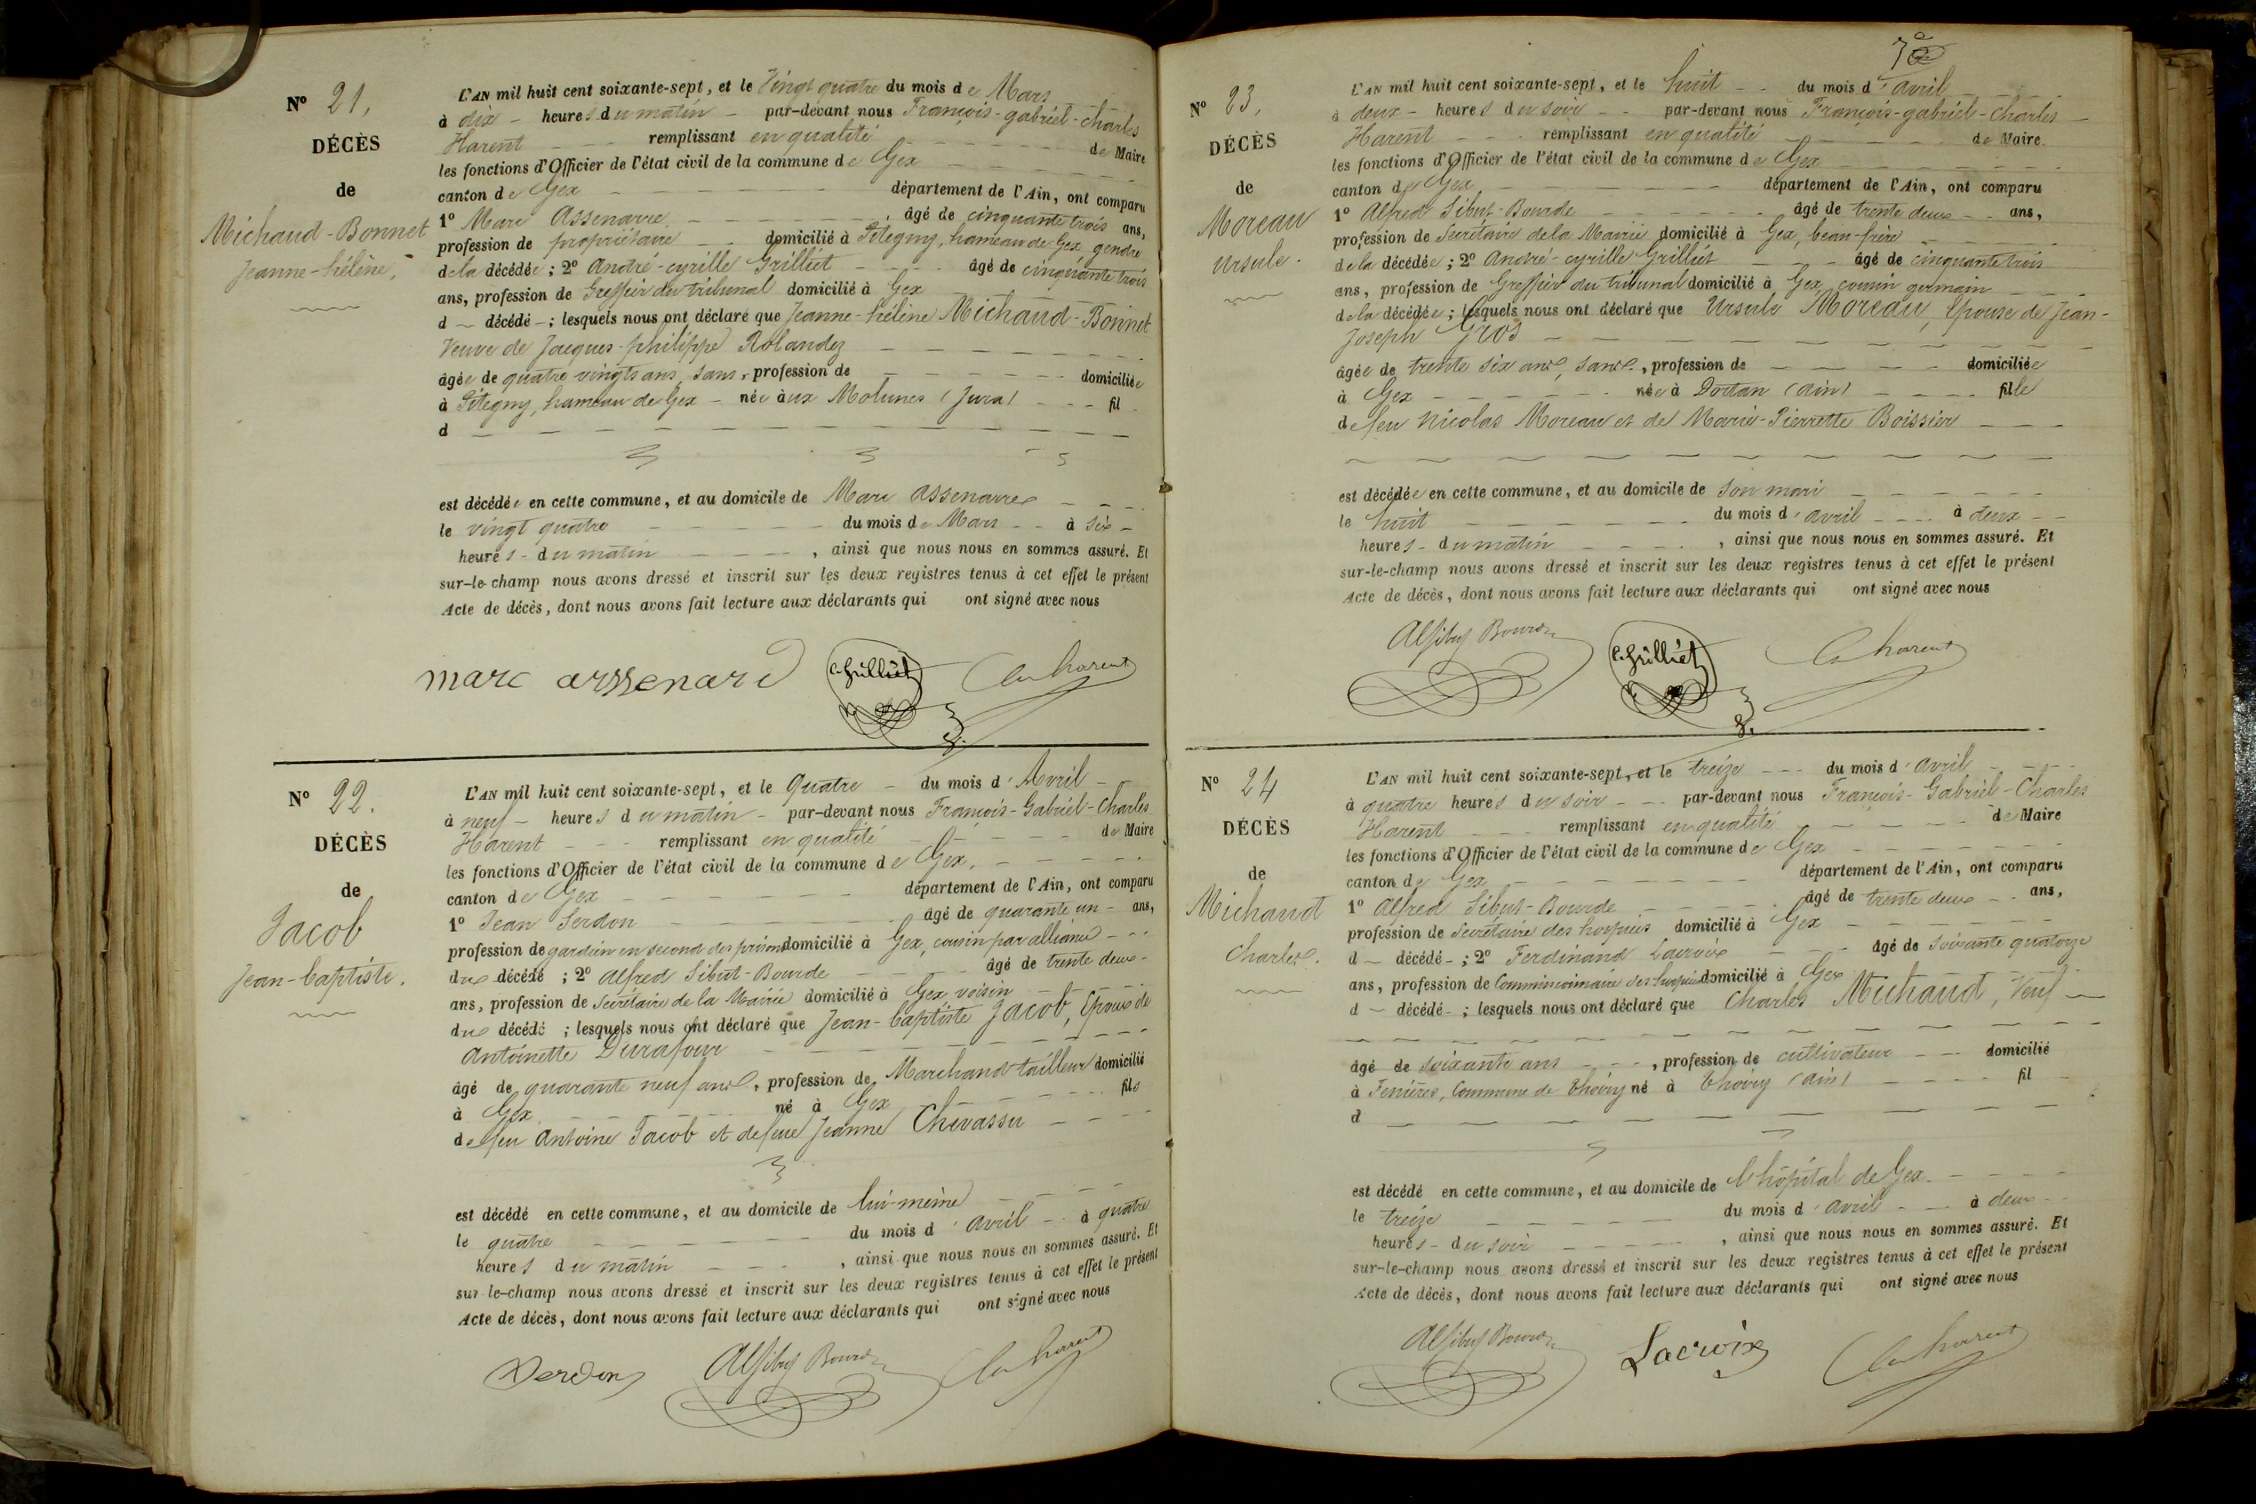 Nº 21.
DÉCÈS
de
Michaud-Bonnet
Jeanne-hélène.
L'AN mil huit cent soixante-sept, et le Vingt quatre du mois de Mars
à dix heures du matin par-devant nous François-gabriel-Charles
Harent remplissant en qualité de Maire
les fonctions d'Officier de l'état civil de la commune de Gex
canton de Gex département de l'Ain, ont comparu
1º Marc Assenarre, âgé de cinquante trois ans,
profession de propriétaire domicilié à Pitegny, hameau de Gex, gendre
de la décédée; 2º André-cyrille Grilliet âgé de cinquante trois
ans, profession de Greffier du tribunal domicilié à Gex
d décédé; lesquels nous ont déclaré que Jeanne-hélène Michaud-Bonnet
Veuve de Jacques-philippe Rolandez
âgée de quatre vingts ans, sans, profession de domiciliée
à Pitegny, hameau de Gex née aux Molunes (Jura) fil
d
est décédée en cette commune, et au domicile de Marc Assenarre
le vingt quatre du mois de Mars à six
heures du matin, ainsi que nous nous en sommes assuré. Et
sur-le-champ nous avons dressé et inscrit sur les deux registres tenus à cet effet le présent
Acte de décès, dont nous avons fait lecture aux déclarants qui ont signé avec nous
marc assenard C. Grilliet Ch harent
Nº 22.
DÉCÈS
de
Jacob
Jean-baptiste.
L'AN mil huit cent soixante-sept, et le Quatre du mois d'Avril
à neuf heures du matin par-devant nous François-Gabriel-Charles
Harent remplissant en qualité de Maire
les fonctions d'Officier de l'état civil de la commune de Gex,
canton de Gex département de l'Ain, ont comparu
1º Jean Verdon âgé de quarante un ans,
profession de gardien en second des prisons domicilié à Gex, cousin par alliance
du décédé; 2º Alfred Sibut-Bourde âgé de trente deux
ans, profession de Secrétaire de la Mairie domicilié à Gex voisin
du décédé; lesquels nous ont déclaré que Jean-baptiste Jacob, Epoux de
Antoinette Durafour
âgé de quarante neuf ans, profession de Marchand tailleur domicilié
à Gex né à Gex fils
de feu Antoine Jacob et de feue Jeanne Chevassu
est décédé en cette commune, et au domicile de lui-même
le quatre du mois d'avril à quatre
heures du matin, ainsi que nous nous en sommes assuré. Et
sur-le-champ nous avons dressé et inscrit sur les deux registres tenus à cet effet le présent
Acte de décès, dont nous avons fait lecture aux déclarants qui ont signé avec nous
Verdon Al Sibut Bourde Ch harent
Nº 23.
DÉCÈS
de
Moreau
Ursule.
L'AN mil huit cent soixante-sept, et le huit du mois d'avril
à deux heures du soir par-devant nous François-gabriel-Charles
Harent remplissant en qualité de Maire
les fonctions d'Officier de l'état civil de la commune de Gex
canton de Gex département de l'Ain, ont comparu
1º Alfred Sibut-Bourde âgé de trente deux ans,
profession de Secrétaire de la Mairie domicilié à Gex, beau-frère
de la décédée; 2º André-cyrille Grilliet âgé de cinquante trois
ans, profession de Greffier du tribunal domicilié à Gex, cousin germain
de la décédée; lesquels nous ont déclaré que Ursule Moreau, Epouse de Jean-
Joseph Gros
âgée de trente six ans, sans, profession de domiciliée
à Gex née à Dortan (ain) fille
de feu Nicolas Moreau et de Marie-Pierrette Boissier
est décédée en cette commune, et au domicile de son mari
le huit du mois d'avril à deux
heures du matin, ainsi que nous nous en sommes assuré. Et
sur-le-champ nous avons dressé et inscrit sur les deux registres tenus à cet effet le présent
Acte de décès, dont nous avons fait lecture aux déclarants qui ont signé avec nous
Al Sibut Bourde C. Grilliet Ch harent
Nº 24
DÉCÈS
de
Michaud
Charles.
L'AN mil huit cent soixante-sept, et le treize du mois d'avril
à quatre heures du soir par-devant nous François-Gabriel-Charles
Harent remplissant en qualité de Maire
les fonctions d'Officier de l'état civil de la commune de Gex
canton de Gex département de l'Ain, ont comparu
1º Alfred Sibut-Bourde âgé de trente deux ans,
profession de Secrétaire des hospices domicilié à Gex
d décédé; 2º Ferdinand Lacroix âgé de soixante quatorze
ans, profession de Commissionnaire des hospices domicilié à Gex
d décédé; lesquels nous ont déclaré que Charles Michaud, Veuf
âgé de soixante ans, profession de cultivateur domicilié
à Fenières, Commune de Thoiry né à Thoiry (ain) fil
d
est décédé en cette commune, et au domicile de l'hôpital de Gex
le treize du mois d'avril à deux
heures du soir, ainsi que nous nous en sommes assuré. Et
sur-le-champ nous avons dressé et inscrit sur les deux registres tenus à cet effet le présent
Acte de décès, dont nous avons fait lecture aux déclarants qui ont signé avec nous
Al Sibut Bourde Lacroix Ch harent